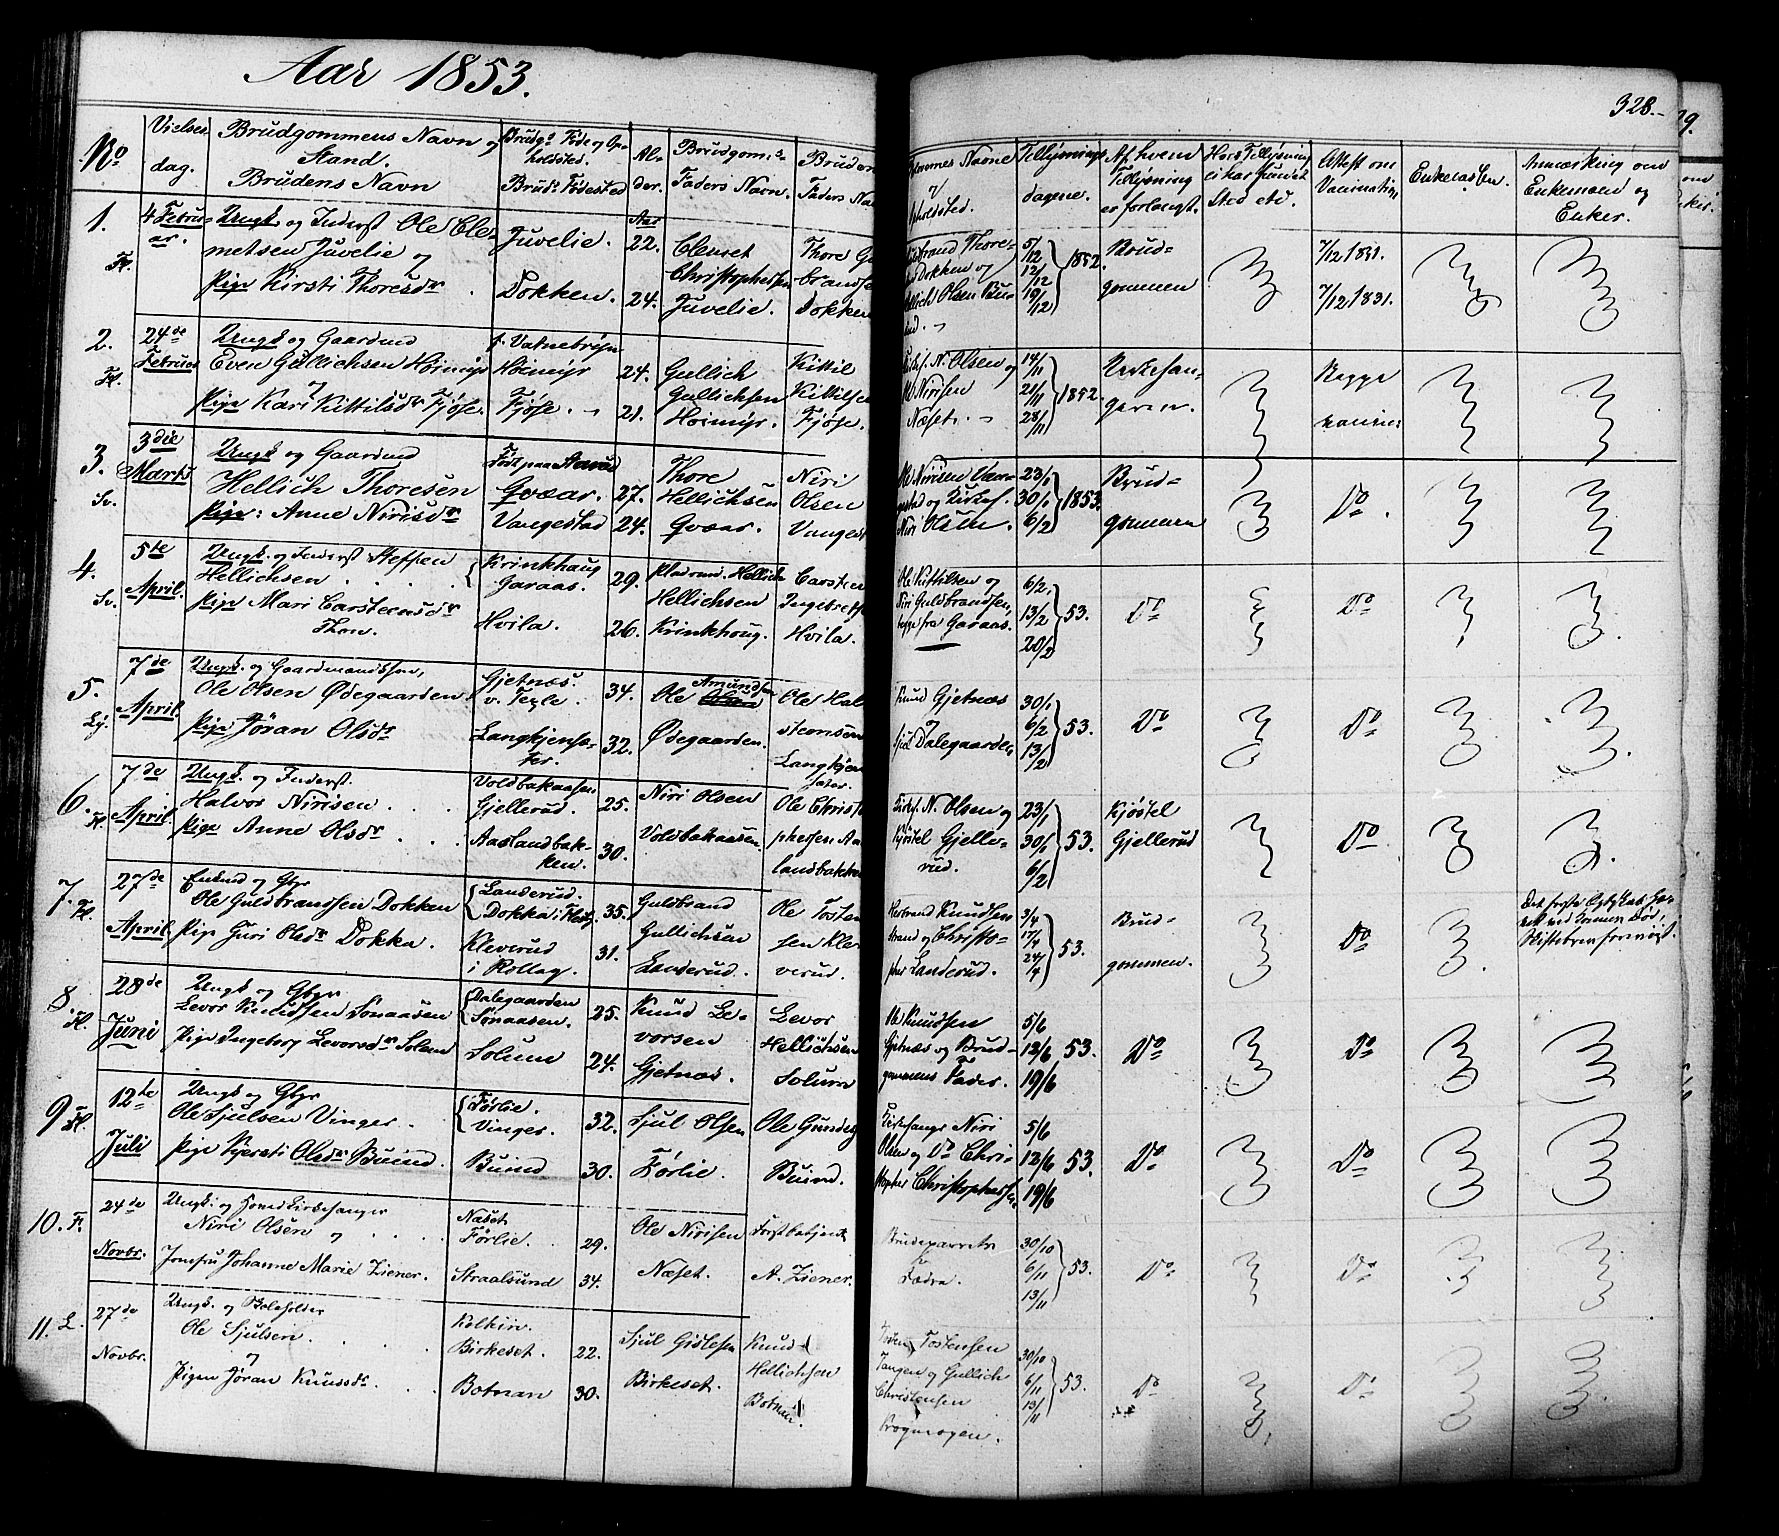 Aar 1853.
328.
No
Vielses
dag.
Brudgommens Navn og
Stand.
Brudens Navn
Brudgs Føde og Op-
holdsted.
Bruds Fødested
Al-
der.
Brudgoms
Faders Navn.
Bruden
Faders Na
Navne
Tillysnings
dagene.
Af hvem
Tillysning
er forlangt.
Attest om
Vaccination
Anmærkning om
Enkemænd og
Enker.
1.
4 Februar
Ungk. og Inderst Ole Cle-
metsen Juvelie og
Pige Kirsti Thoresdr
Juvelie.
Dokken.
Aar
22.
24.
Clemet
Christophersen
Juvelie.
Thore Gu
brandse
Dokken
Thore-
Dokken og
Olsen
5/12
12/12
19/12
1852.
Brud-
gommen
7/12 1831.
7/12 1831.
2.
24de
Februar
Ungk. og Gaardmd
Even Gullichsen Høimyr
og
Pige Kari Kittilsdr Fjøse.
Høimyr
Fjøse.
24.
21.
Gullich
Gullichsen
Høimyr.
Kittil
Kittilse
Fjøse.
N. Olsen og
Nirisen
Næset.
14/11
21/11
28/11
1852.
Kirkesan-
geren.
Begge
vaccine
3.
3die
Marts
Sv.
Ungk. og Gaardmd
Hellich Thoresen
Pige: Anne Nirisdr
Født paa
Qvæar.
Vangestad
27.
24.
Thore
Hellichsen
Qvæar.
Niri
Olsen
Vangest
Nirisen Van-
gestad og Kirkes.
Niri Olsen.
23/1
30/1
6/2
1853.
Brud-
gommen
Do.
4.
5te
April.
Sv.
Ungk. og Inderst Steffen
Hellichsen
Pige Mari Carsteensdr
Thon.
Krinkhaug
Garaas.
Hvila.
29.
26.
Pladsmd. Hellich
Hellichsen
Krinkhoug.
Carsten
Ingebretse
Hvila.
Ole Kittilsen og
Niri Guldbrandsen,
begge fra Garaas.
6/2
13/2
20/2
53.
Do
Do
5.
7de
April.
Ly.
Ungk. og Gaardmandssøn,
Ole Olsen Ødegaarden
Pige Jøran Olsdr
Gjetnæs.
v. Tegle.
Langkjensæ-
ter.
34.
32.
Amundsen
Ole Olsen
Ødegaarden.
Ole Hal
steensen
Langkjen
sæter.
Knud Gjetnæs
og
Sjul Dalegaarden
30/1
6/2
13/2
53.
Do
Do
6.
7de
April.
Ungk. og Inderst.
Halvor Nirisen
Pige Anne Olsdr
Voldbakaasen
Gjellerud.
Aaslandbak-
ken.
25.
30.
Niri Olsen
Voldbakaasen.
Ole Christo
phersen Aas
landbakken
Kirkes. N. Olsen og
Kjøstel Gjelle-
rud.
23/1
30/1
6/2
53.
Kjøstel
Gjellerud
Do
7.
Fl.
27de
April.
Enkmd og Gbgr
Ole Guldbrandsen Dokken
Pige Guri Olsdr Dokka.
Landerud.
Dokka i Flesb.
Kleverud
i Rollag.
35.
31.
Guldbrand
Gullichsen
Landerud.
Ole Tosten
sen Kle
verud.
Herbrand Knudsen
Strand og Christo-
pher Landerud.
3/4
17/4
24/4
53.
Brud-
gommen.
Do
8
Fl.
28de
Juni
Ungk. og Gbgr
Levor Knudsen Sønaasen
Pige Ingeborg Levorsdr Solem
Dalegaarden
Sønaasen.
Solum
25.
24.
Knud Le-
vorsen
Gjetnæs.
Levor
Hellichsen
Solum
Ole Knudsen
Gjetnæs og Brud-
gommens Fader.
5/6
12/6
19/6
53.
Do
Do
9
Fl.
12te
Juli
Ungk. og Gbgr
Ole Sjulsen Vinger
Pige Kjersti Olsdr Buind
Førlie.
Vinger.
Buind
32.
30.
Sjul Olsen
Førlie.
Ole Gundes
Buind.
Kirkesanger Niri
Olsen og Do Chri-
stopher Christophersen
5/6
12/6
19/6
53.
Do
Do
10.
Fl.
24de
Novbr.
Ungk. og Kirkesanger
Niri Olsen og
Jomfru Johanne Marie Ziener.
Næset
Førlie.
Straalsund
29.
34.
Ole Nirisen
Næset.
Forstbetjent
A. Ziener.
Brudeparrets
Fædre.
30/10
6/11
13/11
53.
Do
Do
11.
27de
Novbr.
Ungk. og
Ole Sjulsen
og
Pigen Jøran Knudsdr
Kolkin.
Birkeset.
Botnan
22.
30.
Sjul Gislesen
Birkeset.
Knud
Hellichsen
Botnan.
Tostensen
Tangen og Gullich
Christensen
30/10
6/11
13/11
53.
Do
Do